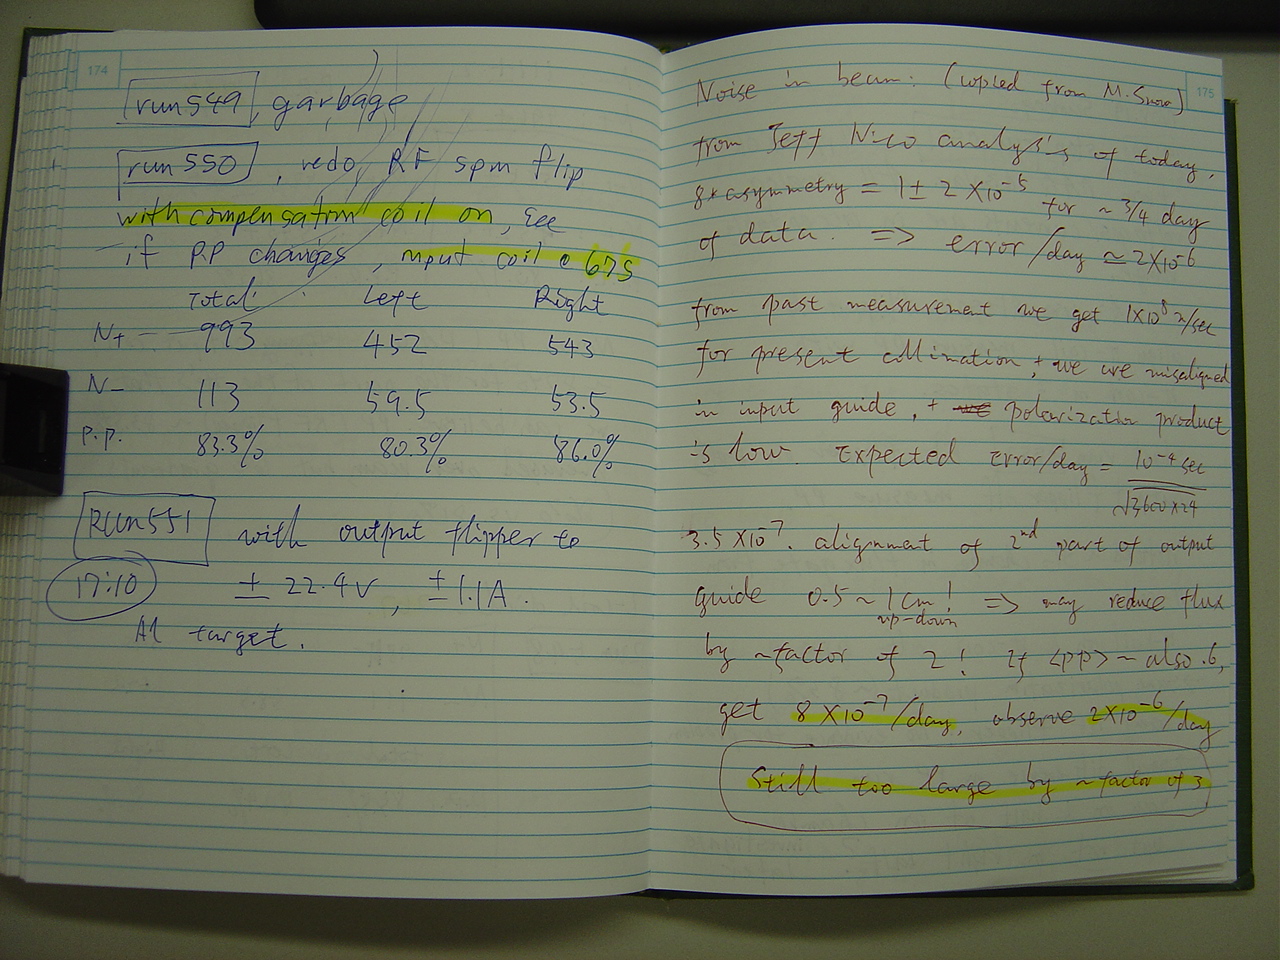 174
run549, garbage
run550, redo, RF spin flip
with compensation coil on, see
if PP changes, input coil @ 675
Total Left Right
N+ 993 452 543
N- 113 59.5 53.5
P.P. 83.3% 80.3% 86.0%
Run551 with output flipper to
17:10 ± 22.4V, ± 1.1A.
Al target.
175
Noise in beam: (copied from M. Snow)
from Jeff Nico analysis of today,
8* asymmetry = 1 ± 2 X10⁻⁵ for ~ 3/4 day
of data. => error/day ≃ 2X10⁻⁶
from past measurement we get 1X10⁸ n/sec
for present collimation, + we are misaligned
in input guide, + we polarization product
is low. Expected error/day = 10⁻⁴ sec
√3600x24
3.5 X10⁻⁷. alignment of 2nd part of output
guide 0.5 ~ 1 cm! => may reduce flux
up-down
by ~factor of 2! If <PP> ~ also .6,
get 8 X10⁻⁷/day, observe 2X10⁻⁶/day
Still too large by ~ factor of 3